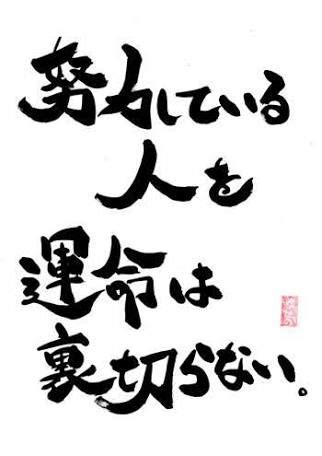 努力している
人を
運命は
裏切らない。